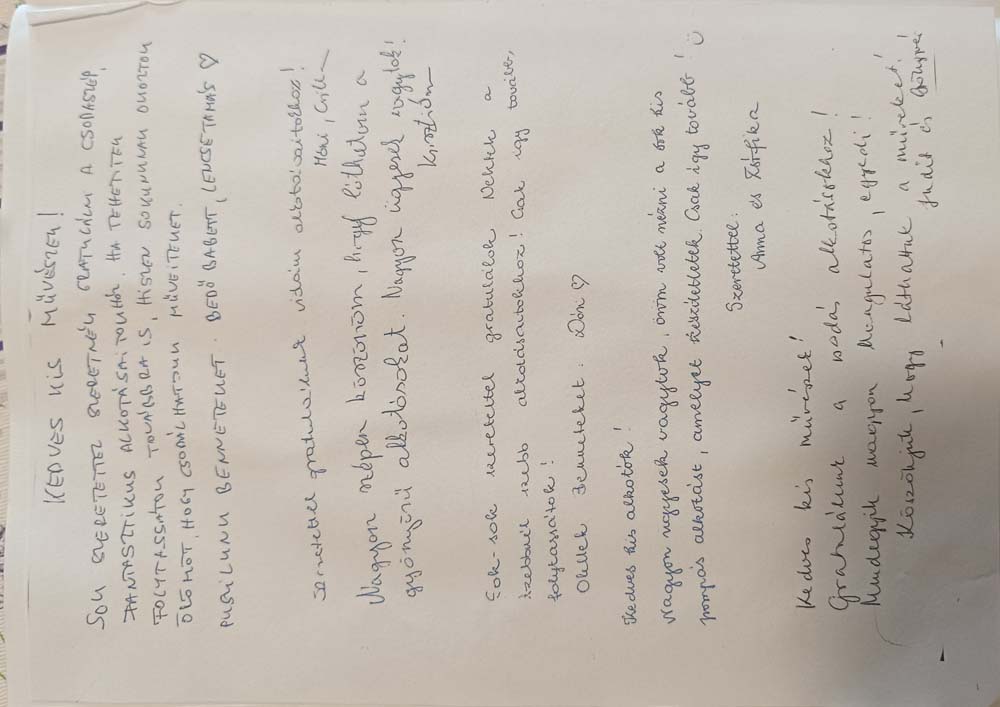 KEDVES KIS MŰVÉSZEK!
SOK SZERETETTEL SZERETNÉK GRATULÁLNI A CSODASZÉP,
FANTASZTIKUS ALKOTÁSAITOKHOZ. HA TEHETITEK
FOLYTASSÁTOK TOVÁBBRA IS, HISZEN SOKUNKNAK OKOZTOK
ÖRÖMÖT, HOGY CSODÁLHATJUK MŰVEITEKET.
PUSZILUNK BENNETEKET. BEDŐ BABETT, LENCSE TAMÁS ♡
Szeretettel gratulálunk vidám alkotásaitokhoz!
Nagyon szépen köszönöm, hogy láthatom a
gyönyörű alkotásokat. Nagyon ügyesek vagytok!
Krisztián
Sok-sok szeretettel gratulálok Nektek a
szebbnél szebb alkotásaitokhoz! Csak így tovább,
folytassátok!
Ölellek Benneteket: Dóri ♡
Kedves kis alkotók!
Nagyon ügyesek vagytok, öröm volt nézni a sok kis
pompás alkotást, amelyet készítettetek. Csak így tovább! ☺
Szeretettel:
Anna és Zsófika
Kedves kis művészek!
Gratulálunk a csodás alkotásokhoz!
Mindegyik nagyon hangulatos, egyedi!
Köszönjük, hogy láthattuk a műveket!
Judit és Gyöngyi